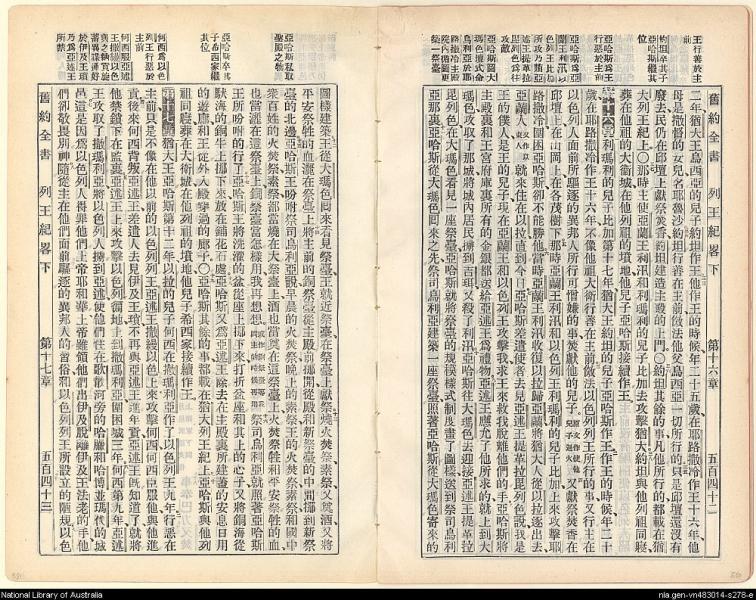 舊約全書 列王紀畧下 第十六章 五百四十二
王行善於主
約坦卒其子亞哈斯繼其位
亞哈斯爲王行惡於主前
二年猶大王烏西亞的兒子約坦作王他作王的時候年二十五歲在耶路撒冷作王十六年他
母是撒督的女兒名耶魯沙約坦行善在主前傚法他父烏西亞一切所行的只是邱壇還沒有
廢去民仍在邱壇上獻祭焚香約坦建造主殿的上門〇約坦其餘的事凡他所行的都載在猶
大列王紀上〇那時主使亞蘭王利汛和利瑪利的兒子比加去攻擊猶大約坦與他列祖同寢
葬在他祖的大衛城在他列祖的墳地他兒子亞哈斯接續作王
第十六章利瑪利的兒子比加第十七年猶大王約坦的兒子亞哈斯作王作王的時候年二十
歲在耶路撒冷作王十六年不像他祖大衛行善在主前傚法以色列列王所行的事又行主在
以色列人面前所驅逐的異邦人所行可憎嫌的事焚獻他的兒子又獻祭焚香在
邱壇上在山岡上在各茂樹下那時亞蘭王利汛和以色列王利瑪利的兒子比加上來攻擊耶
路撒冷圍困亞哈斯卻不能勝他當時亞蘭王利汛收復以拉歸亞蘭將猶大人從以拉逐出去
亞蘭人就來住在以拉直到今日亞哈斯差遣使者去見亞述王提革拉毘列色說我是
王的僕人是王的兒子現在亞蘭王和以色列王攻擊我求王來救我脫離他們的手亞哈斯將
主殿裏和王宮府庫裏所有的金銀都送給亞述王爲禮物亞述王應允了他所求的就上到大
瑪色攻取了那城將城內居民擄到吉珥又殺了利汛亞哈斯往大瑪色去迎接亞述王提革拉
毘列色在大瑪色看見一座祭臺亞哈斯就將祭臺的規模樣式制度畫了圖樣送到祭司烏利
亞那裏亞哈斯從大瑪色回來之先祭司烏利亞建築一座祭臺照著亞哈斯從大瑪色寄來的
亞哈斯私取聖殿之物
亞哈斯卒其子希西家繼其位
何西爲以色列王行惡於主前
圖樣建築王從大瑪色回來看見祭臺王就近祭臺在祭臺上獻祭燒火焚祭素祭又奠酒又將
平安祭牲的血灑在祭臺上將主前的銅祭臺從主殿前挪開從殿和新祭臺的中間挪到新祭
臺的北邊亞哈斯王吩咐祭司烏利亞說早晨的火焚祭晚上的素祭王的火焚祭素祭和國中
衆百姓的火焚祭素祭都當燒在大祭臺上酒也當奠在這祭臺上火焚祭牲和平安祭牲的血
也當灑在這祭臺上銅祭臺當怎樣用我再想想祭司烏利亞就照著亞哈斯
王所吩咐的行了亞哈斯王將洗濯的盆從座上挪下來打折盆座和其上的心子又將銅海從
馱海的銅牛上挪下來放在鋪花石處亞哈斯又爲亞述王除去在主殿裏所建蓋的安息日用
的遊廊和王從外入殿穿過的廊子〇亞哈斯其餘的事都載在猶大列王紀上亞哈斯與他列
祖同寢葬在大衛城在他列祖的墳地他兒子希西家接續作王
第十七章猶大王亞哈斯第十二年以拉的兒子何西在撒瑪利亞作了以色列王九年行惡在
主前只是不像在他以前的以色列列王亞述王撒縵以色上來攻擊何西何西臣服他與他進
貢後來何西背叛亞述王差遣人去見伊及王瑣不再與亞述王進年貢亞述王旣知道了就將
他禁鎖下在監裏亞述王上來攻擊以色列徧地上到撒瑪利亞圍困城三年何西第九年亞述
王攻取了撒瑪利亞將以色列人擄到亞述使他們住在歌散河旁的哈臘和哈博並瑪代的城
邑這是因爲以色列人得罪他們上帝耶和華上帝雖領他們出伊及脫離伊及王法老的手他
們卻敬畏別神隨從主在他們面前驅逐的異邦人的習俗和以色列列王所設立的陋規以色
舊約全書 列王紀畧下 第十七章 五百四十三
National Library of Australia
nla.gen-vn483014-s278-e